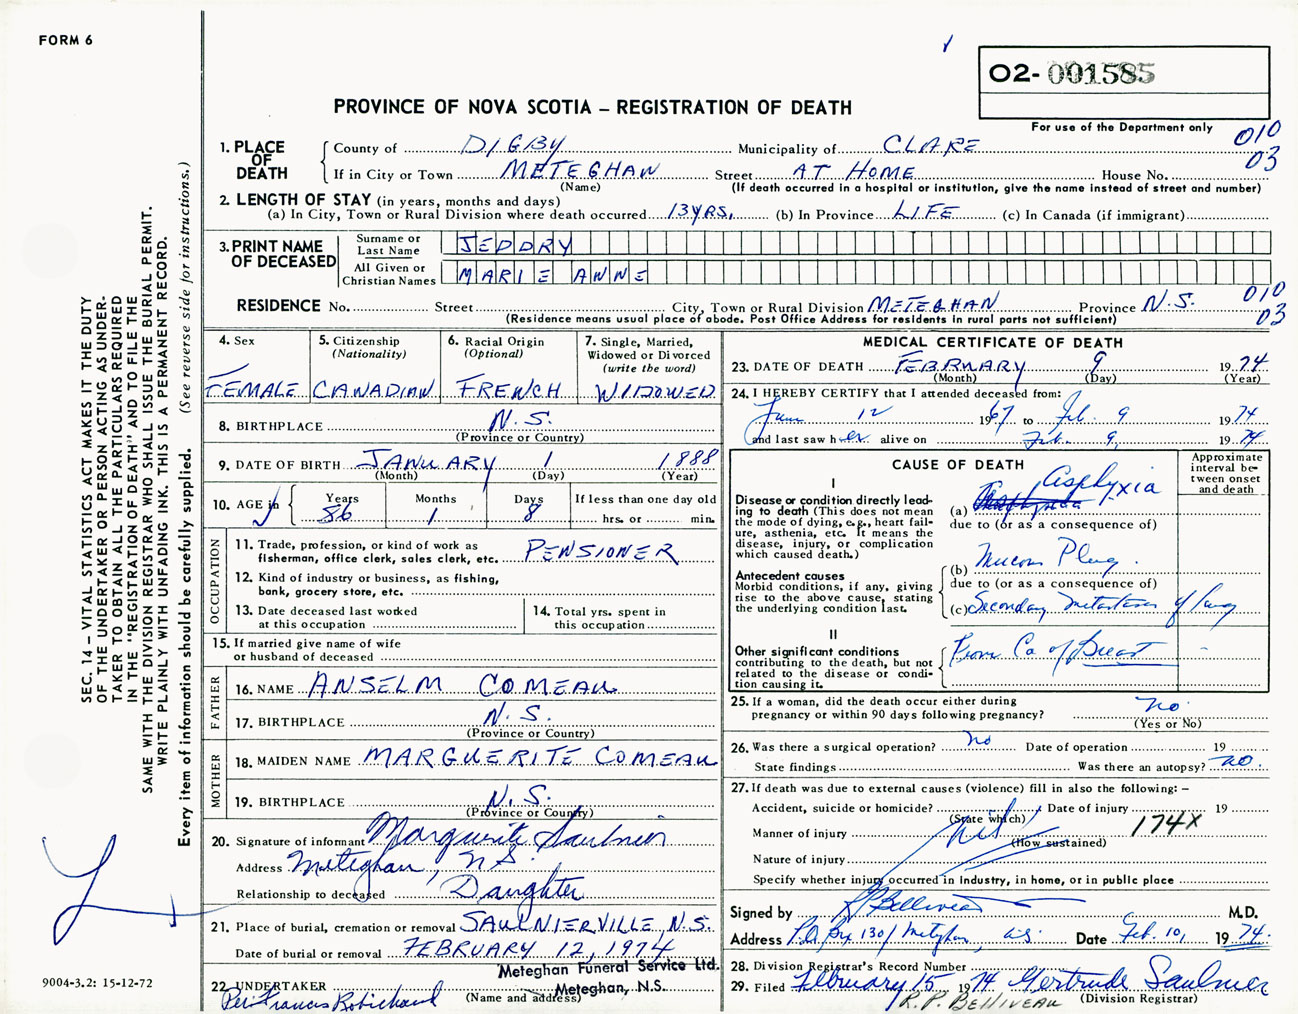 FORM 6
O2- 001585
PROVINCE OF NOVA SCOTIA – REGISTRATION OF DEATH
For use of the Department only
010
03
1. PLACE OF DEATH
County of DIGBY Municipality of CLARE
If in City or Town METEGHAN Street AT HOME House No.
(Name) (If death occurred in a hospital or institution, give the name instead of street and number)
2. LENGTH OF STAY (in years, months and days)
(a) In City, Town or Rural Division where death occurred 13 YRS. (b) In Province LIFE (c) In Canada (if immigrant)
3. PRINT NAME OF DECEASED
Surname or Last Name JEDDRY
All Given or Christian Names MARIE ANNE
RESIDENCE No. Street City, Town or Rural Division METEGHAN Province N.S. 010
(Residence means usual place of abode. Post Office Address for residents in rural parts not sufficient) 03
4. Sex
FEMALE
5. Citizenship
(Nationality)
CANADIAN
6. Racial Origin
(Optional)
FRENCH
7. Single, Married,
Widowed or Divorced
(write the word)
WIDOWED
8. BIRTHPLACE N.S.
(Province or Country)
9. DATE OF BIRTH JANUARY 1 1888
(Month) (Day) (Year)
10. AGE in Years Months Days If less than one day old
86 1 8 hrs. or min.
OCCUPATION
11. Trade, profession, or kind of work as
fisherman, office clerk, sales clerk, etc. PENSIONER
12. Kind of industry or business, as fishing,
bank, grocery store, etc.
13. Date deceased last worked
at this occupation
14. Total yrs. spent in
this occupation
15. If married give name of wife
or husband of deceased
FATHER
16. NAME ANSELM COMEAU
17. BIRTHPLACE N.S.
(Province or Country)
MOTHER
18. MAIDEN NAME MARGUERITE COMEAU
19. BIRTHPLACE N.S.
(Province or Country)
20. Signature of informant Marguerite Saulnier
Address Meteghan, NS.
Relationship to deceased Daughter
21. Place of burial, cremation or removal SAULNIERVILLE, N.S.
Date of burial or removal FEBRUARY 12, 1974
Meteghan Funeral Service Ltd.
Meteghan, N.S.
22. UNDERTAKER
(Name and address)
Per Francis Robichaud
MEDICAL CERTIFICATE OF DEATH
23. DATE OF DEATH FEBRUARY 9 1974
(Month) (Day) (Year)
24. I HEREBY CERTIFY that I attended deceased from:
June 12 1967 to Feb. 9 1974
and last saw her alive on Feb. 9, 1974
CAUSE OF DEATH
Approximate interval between onset and death
I
Disease or condition directly leading to death (This does not mean
the mode of dying, e.g., heart failure, asthenia, etc. It means the
disease, injury, or complication
which caused death.)
(a) Asphyxia
due to (or as a consequence of)
Antecedent causes
Morbid conditions, if any, giving
rise to the above cause, stating
the underlying condition last.
(b) Mucous Plug.
due to (or as a consequence of)
(c) Secondary metastases of lung
II
Other significant conditions
contributing to the death, but not
related to the disease or condition causing it.
From Ca of Breast -
25. If a woman, did the death occur either during
pregnancy or within 90 days following pregnancy? no
(Yes or No)
26. Was there a surgical operation? no Date of operation 19
State findings Was there an autopsy? no.
27. If death was due to external causes (violence) fill in also the following: –
Accident, suicide or homicide? Date of injury 19
(State which)
Manner of injury nil 174X
(How sustained)
Nature of injury
Specify whether injury occurred in industry, in home, or in public place
Signed by RP Belliveau M.D.
Address P.O. Box 130, Meteghan, N.S. Date Feb. 10, 1974.
28. Division Registrar's Record Number
29. Filed February 15 1974 Gertrude Saulnier
R.P. BELLIVEAU (Division Registrar)
SEC. 14 – VITAL STATISTICS ACT MAKES IT THE DUTY
OF THE UNDERTAKER OR PERSON ACTING AS UNDER-
TAKER TO OBTAIN ALL THE PARTICULARS REQUIRED
IN THE "REGISTRATION OF DEATH" AND TO FILE THE
SAME WITH THE DIVISION REGISTRAR WHO SHALL ISSUE THE BURIAL PERMIT.
WRITE PLAINLY WITH UNFADING INK. THIS IS A PERMANENT RECORD.
Every item of information should be carefully supplied. (See reverse side for instructions.)
9004-3.2: 15-12-72